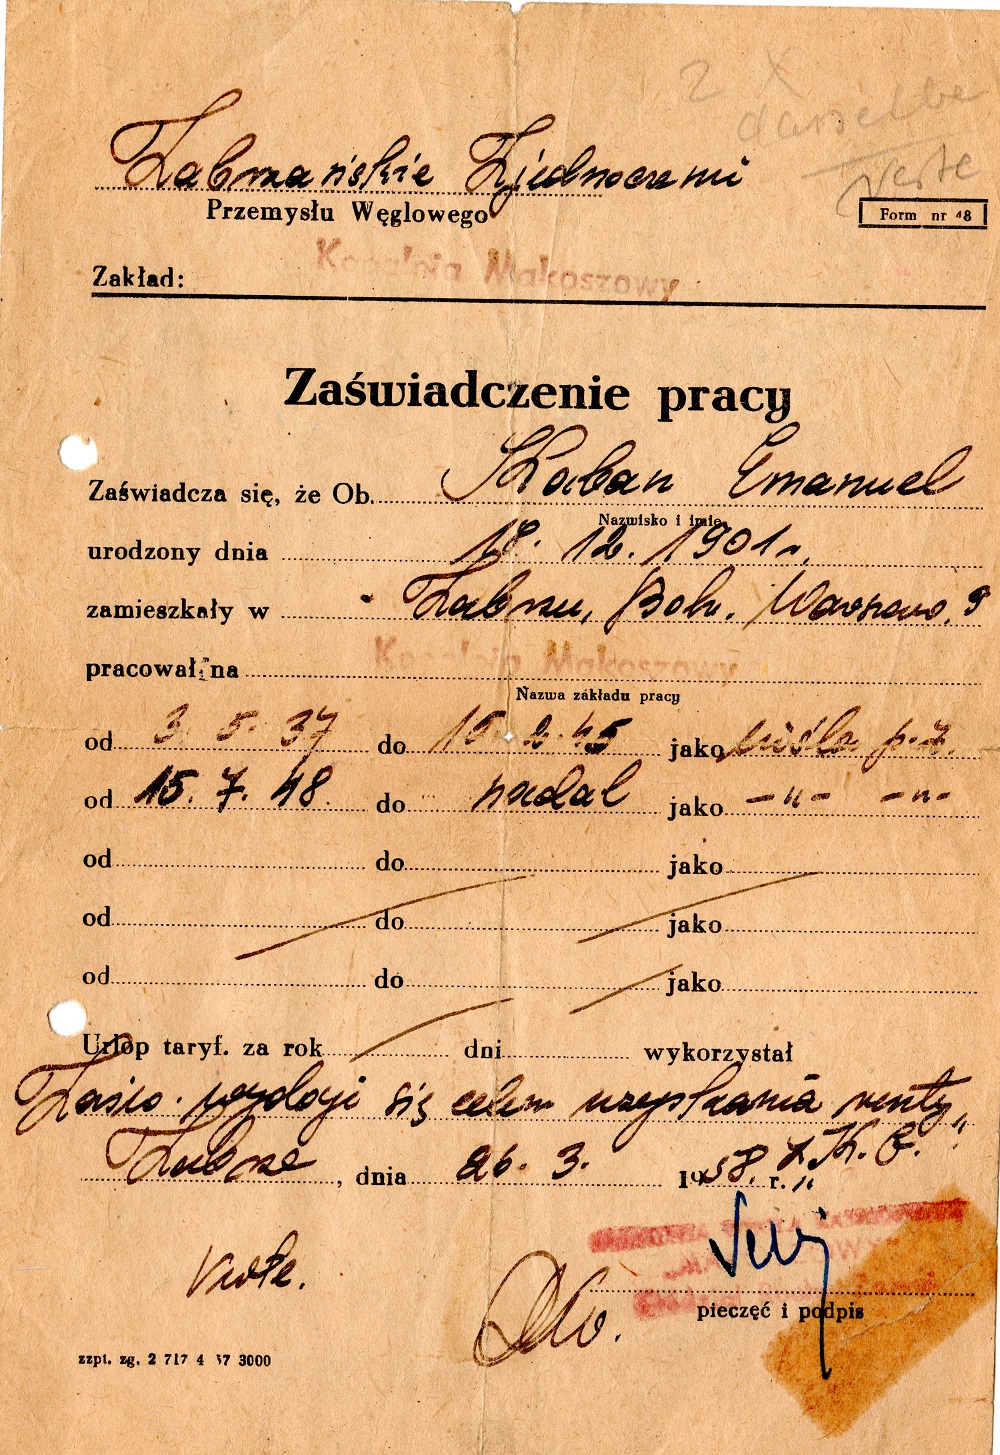 2 X
dasselbe
Zabrzańskie Zjednoczenie
Przemysłu Węglowego
Form nr 18
Zakład: Kopalnia Makoszowy
Zaświadczenie pracy
Zaświadcza się, że Ob. Skaban Emanuel
Nazwisko i imię
urodzony dnia 18. 12. 1901 r.
zamieszkały w Zabrzu, Boh. Warszawy 9
pracował na Kopalnia Makoszowy
Nazwa zakładu pracy
od 3. 5. 37 do 15. 2. 45 jako cieśla p. z.
od 15. 7. 48. do nadal jako -"- -"-
od do jako
od do jako
od do jako
Urlop taryf. za rok dni wykorzystał
Zaśw. wydaje się celem uzyskania renty
"Z. K. G."
Zabrze, dnia 26. 3. 1958. r.
Verte.
pieczęć i podpis
zzpt. zg. 2 717 4 57 3000